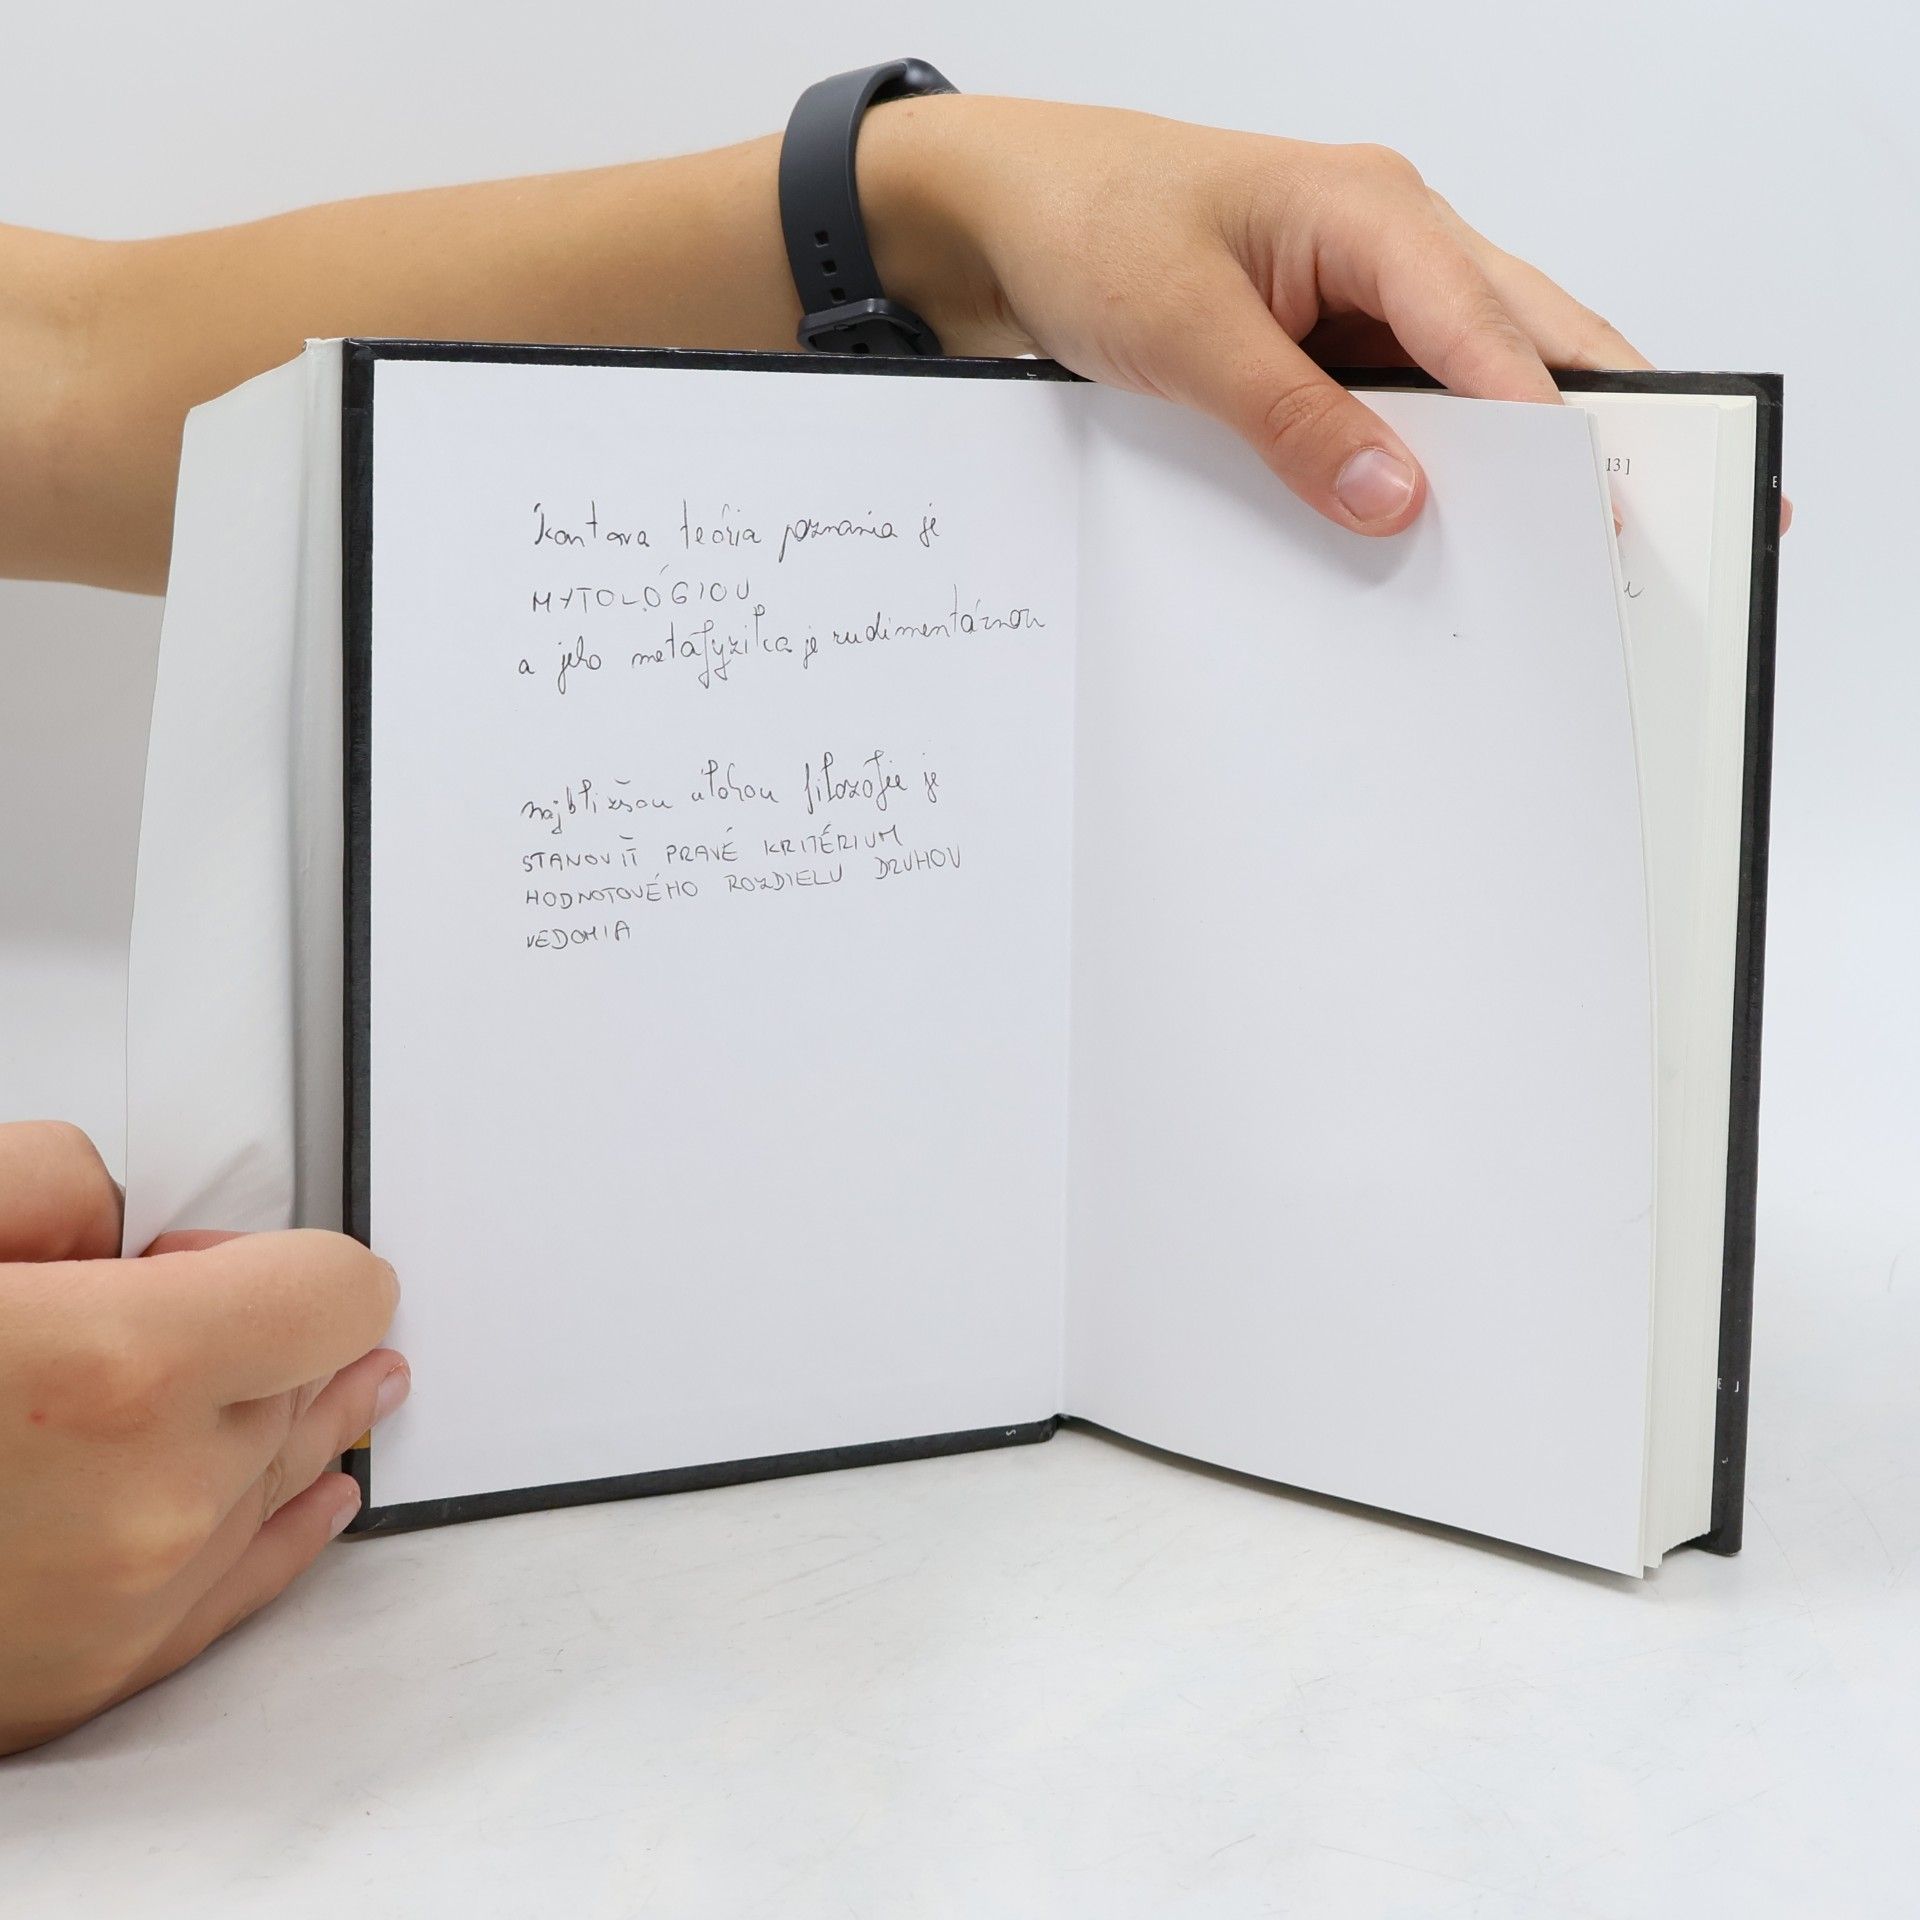 Kantova teória poznania je
MYTOLÓGIOU
a jeho metafyzika je rudimentárnou
najbližšou úlohou filozofie je
STANOVIŤ PRAVÉ KRITÉRIUM
HODNOTOVÉHO ROZDIELU DRUHOV
VEDOMIA
13]